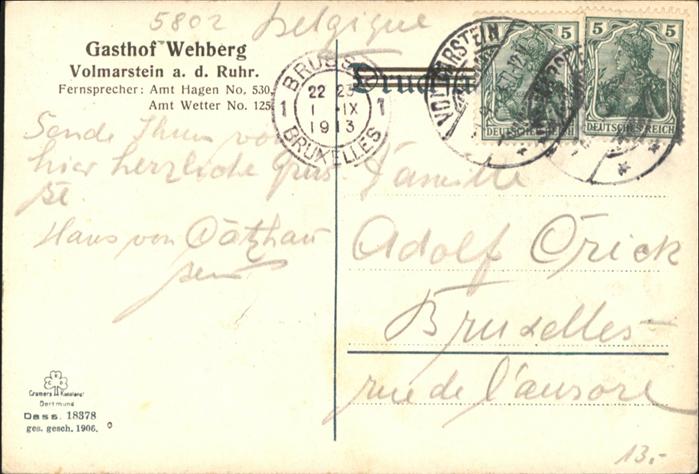 5802 Belgique
Gasthof Wehberg
Volmarstein a. d. Ruhr.
Fernsprecher: Amt Hagen No. 530.
Amt Wetter No. 125.
Drucksache
BRUSSEL
22 23
1 1 IX 1
1913
BRUXELLES
VOLMARSTEIN
5 5
5 5
DEUTSCHES REICH
DEUTSCHES REICH
Sende Ihnen von
hier herzliche Grüs
se.
Hans von
Familie
Adolf Orick
Bruxelles
rue de l'aurore
Cramers Kunstanst
Dortmund
Dess. 18378
ges. gesch. 1906.
13.-